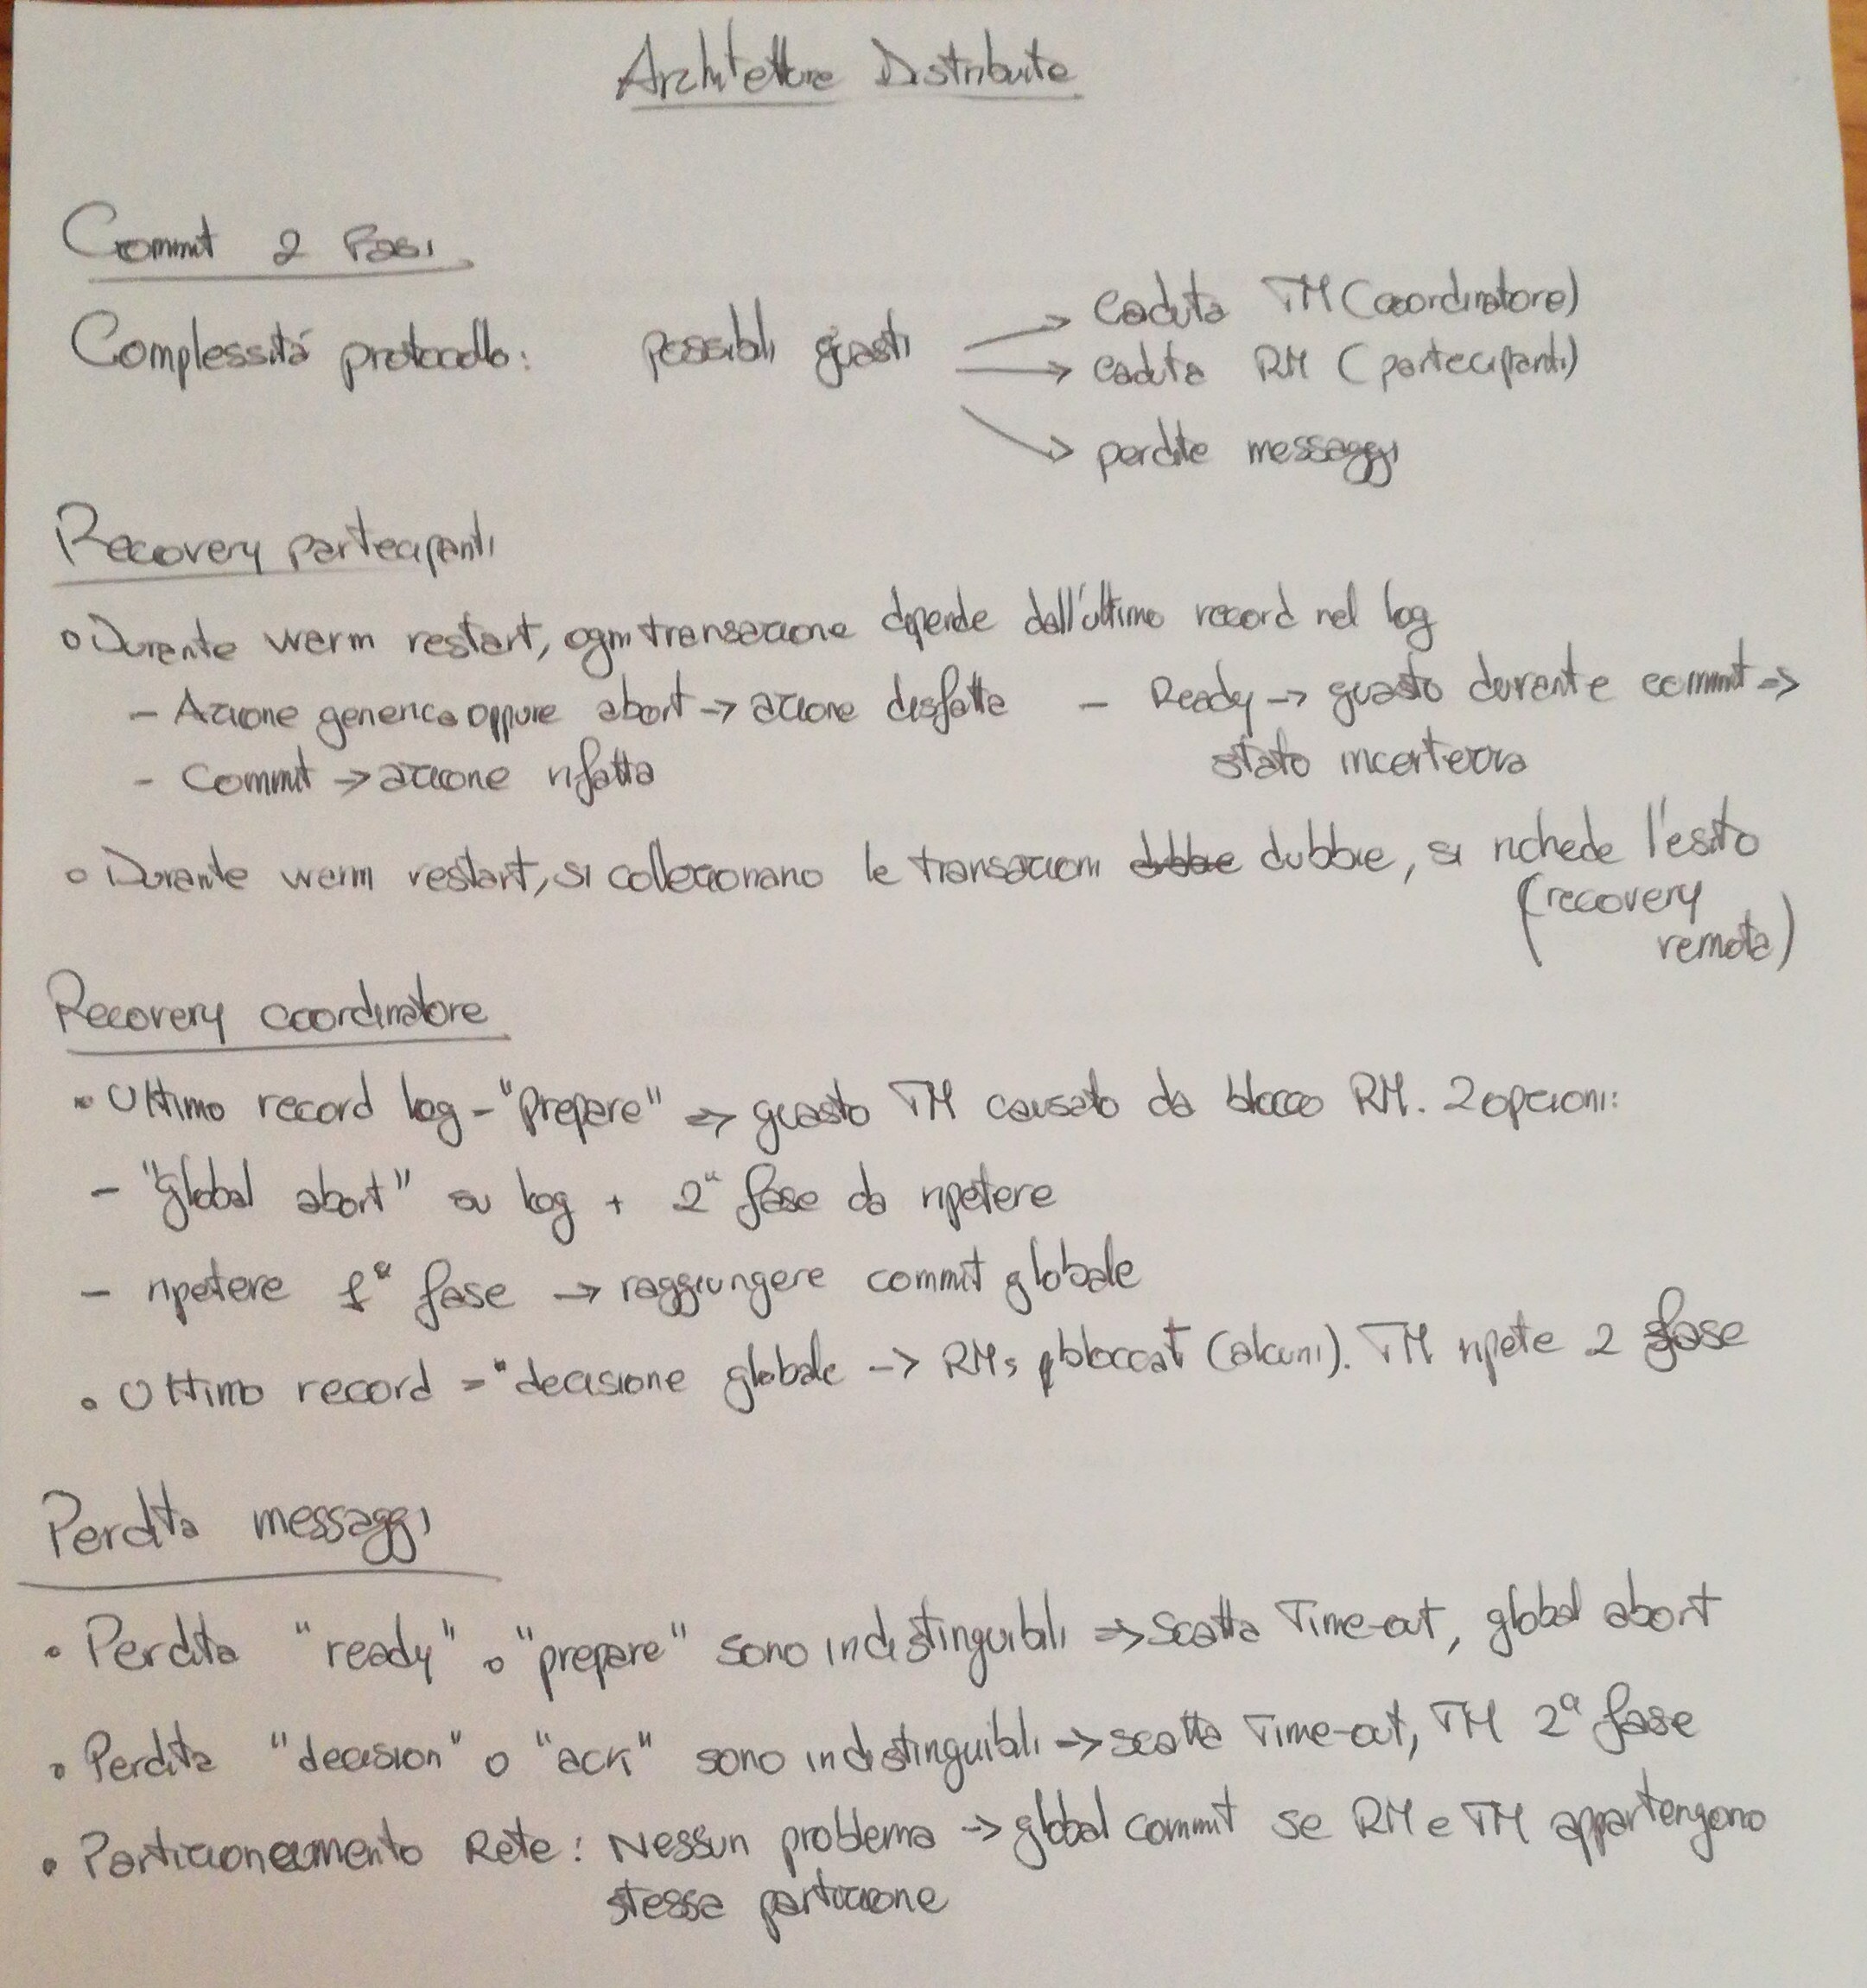 Architetture Distribuite
Commit 2 Fasi
Complessitá protocollo: possibili guasti → caduta TM (coordinatore)
→ caduta RM (partecipanti)
→ perdite messaggi
Recovery partecipanti
• Durante warm restart, ogni transazione dipende dall'ultimo record nel log
- Azione generica oppure abort → azione disfatta - Ready → guasto durante commit ⇒
stato incertezza
- Commit → azione rifatta
• Durante warm restart, si collezionano le transazioni dubbie dubbie, si richede l'esito
(recovery
remota)
Recovery coordinatore
• Ultimo record log - "prepare" ⇒ guasto TM causato da blocco RM. 2 opzioni:
- "global abort" su log + 2ª fase da ripetere
- ripetere 1ª fase → raggiungere commit globale
• Ultimo record = "decisione globale → RMs bloccati (alcuni). TM ripete 2 fase
Perdita messaggi
• Perdita "ready" o "prepare" sono indistinguibili ⇒ scatta Time-out, global abort
• Perdita "decision" o "ack" sono indistinguibili → scatta Time-out, TM 2ª fase
• Partizionamento Rete: Nessun problema → global commit se RM e TM appartengono
stessa partizione